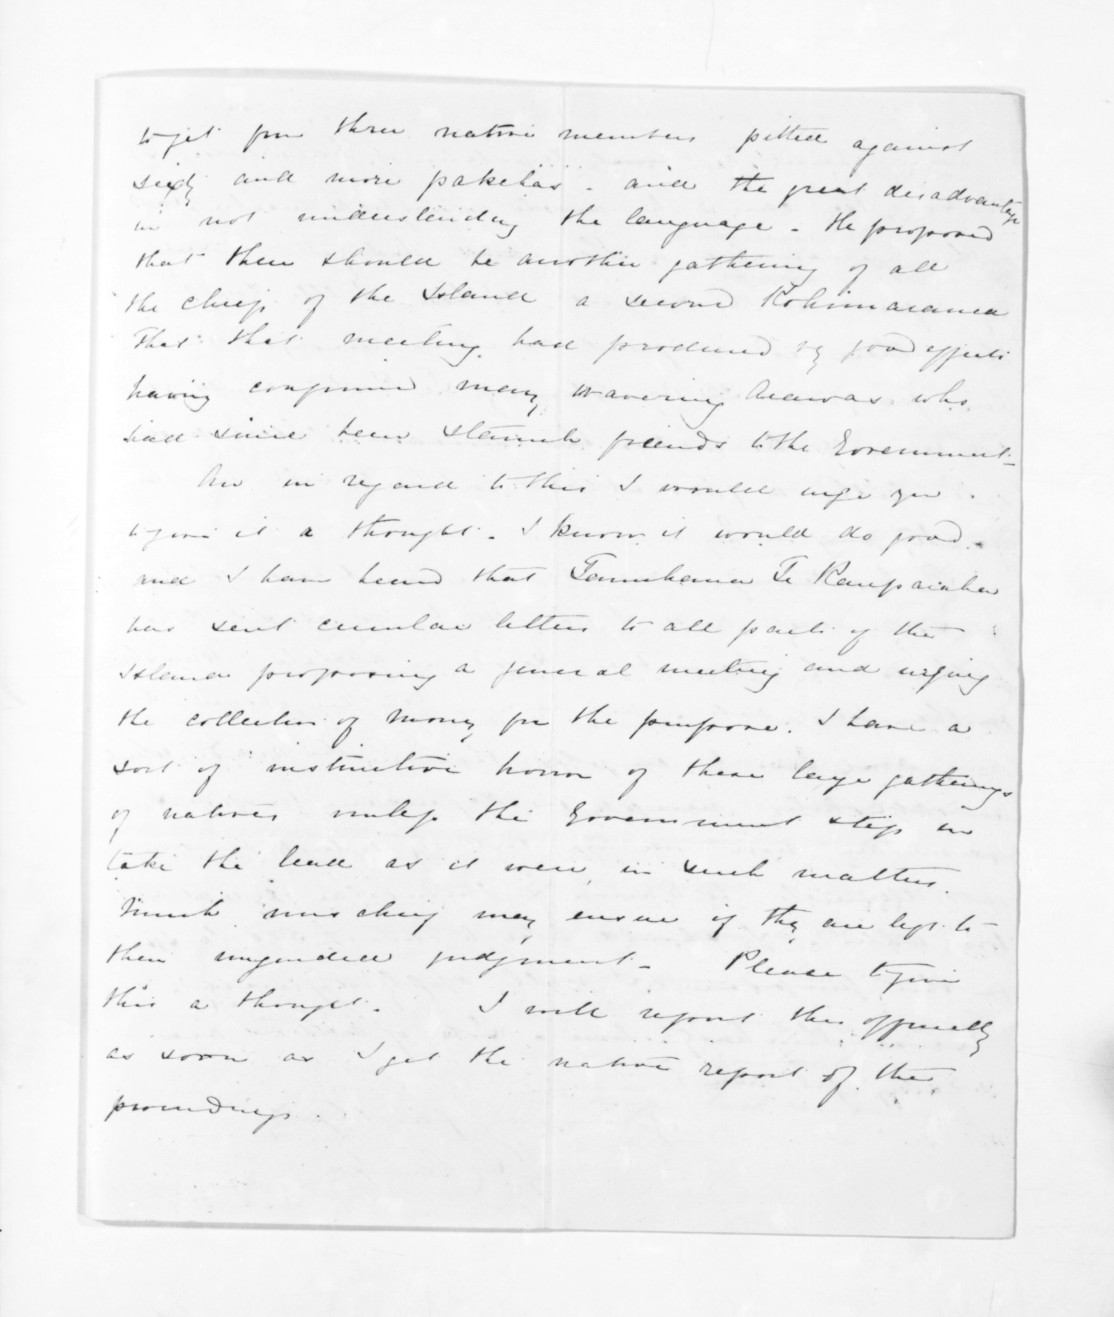 to get four three native members pitted against
sixty and more pakehas. and the great disadvantage
in not understanding the language. He proposed
that there should be another gathering of all
the chiefs of the Island a second Kohimarama
That that meeting had produced good effects
having confirmed many wavering Arawas who
had since been staunch friends to the Government_
Now in regard to this I would urge you
to give it a thought. I know it would do good.
and I have heard that Tamihana Te Rauparaha
has sent circular letters to all parts of the
Island proposing a general meeting and urging
the collection of money for the purpose. I have a
sort of instinctive horror of these large gatherings
of natives unless the Government step in
take the lead as it were, in such matters.
Much mischief may ensue if they are left to
their unguided judgment_ Please to give
this a thought. I will report this officially
as soon as I get the native report of the
proceedings.